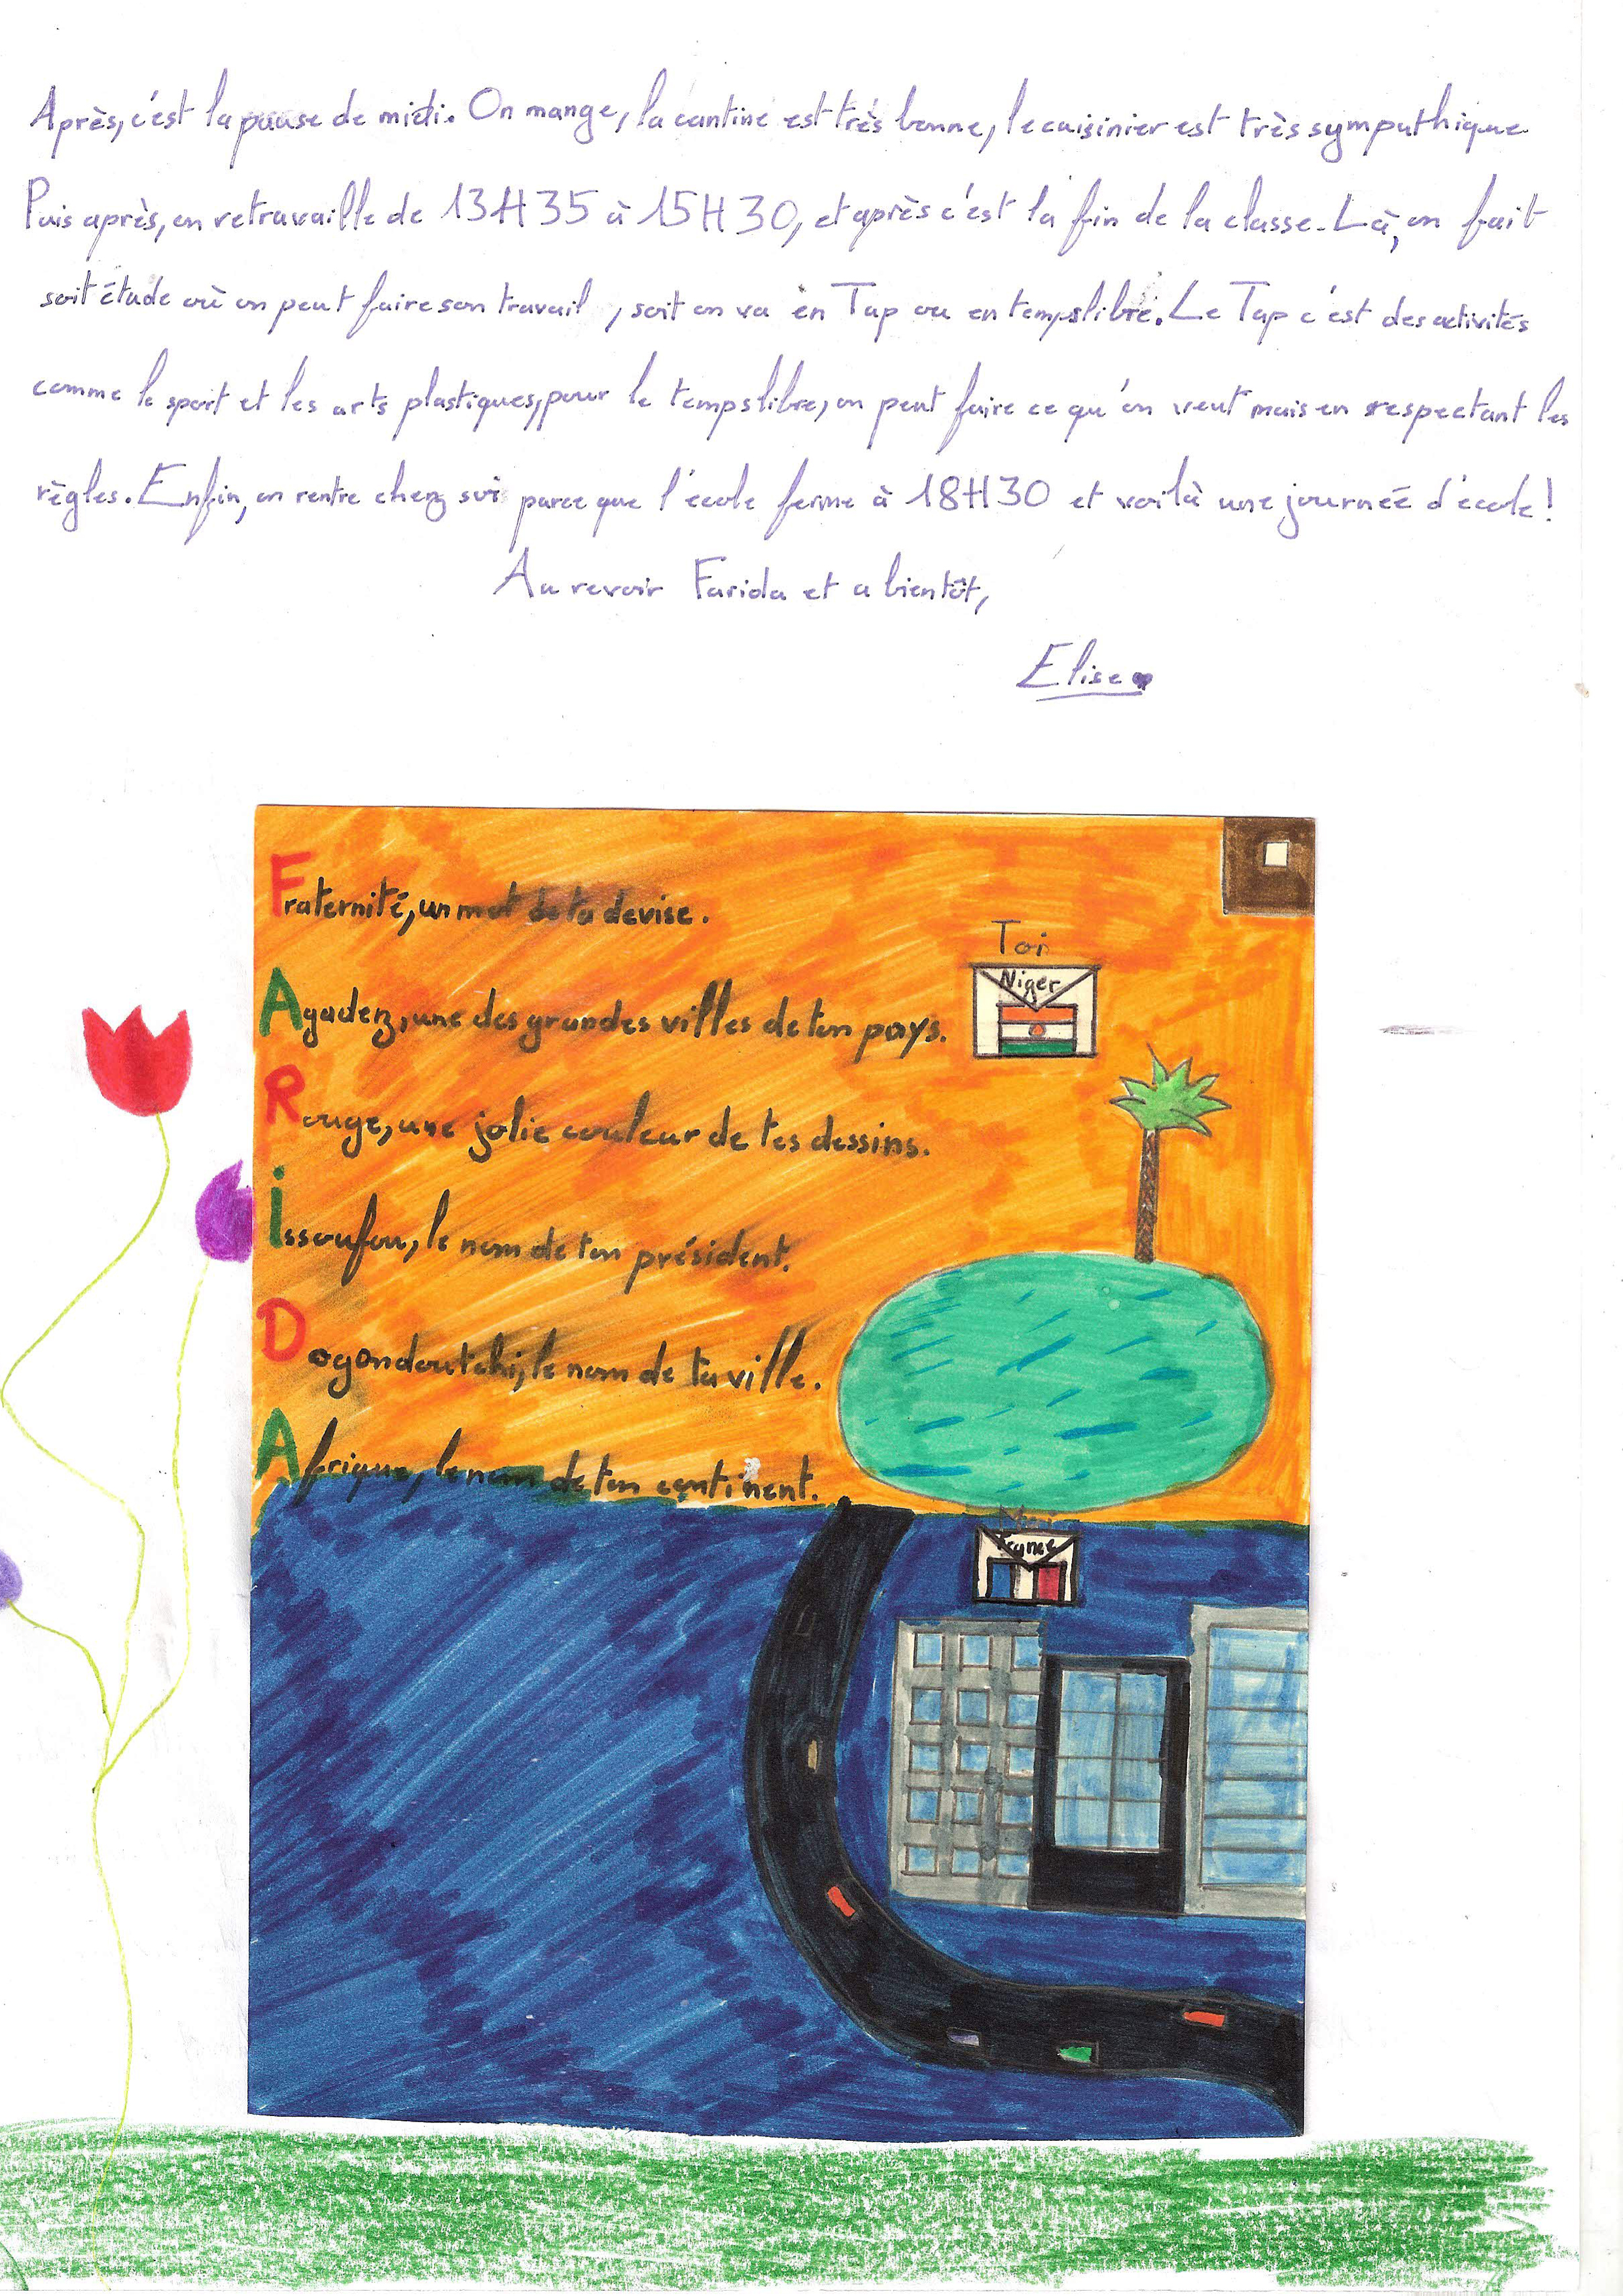 Après, c'est la pause de midi. On mange, la cantine est très bonne, le cuisinier est très sympathique
Puis après, on retravaille de 13H35 à 15H30, et après c'est la fin de la classe. Là, on fait
soit étude où on peut faire son travail, soit on va en Tap ou en temps libre. Le Tap c'est des activités
comme le sport et les arts plastiques, pour le temps libre, on peut faire ce qu'on veut mais en respectant les
règles. Enfin, on rentre chez soi parce que l'école ferme à 18H30 et voilà une journée d'école!
Au revoir Farida et a bientôt,
Elise
Fraternité, un mot de ta devise.
Toi
Niger
Agadez, une des grandes villes de ton pays.
Rouge, une jolie couleur de tes dessins.
issoufou, le nom de ton président.
Dogondoutchi, le nom de ta ville.
Afrique, le nom de ton continent.
France